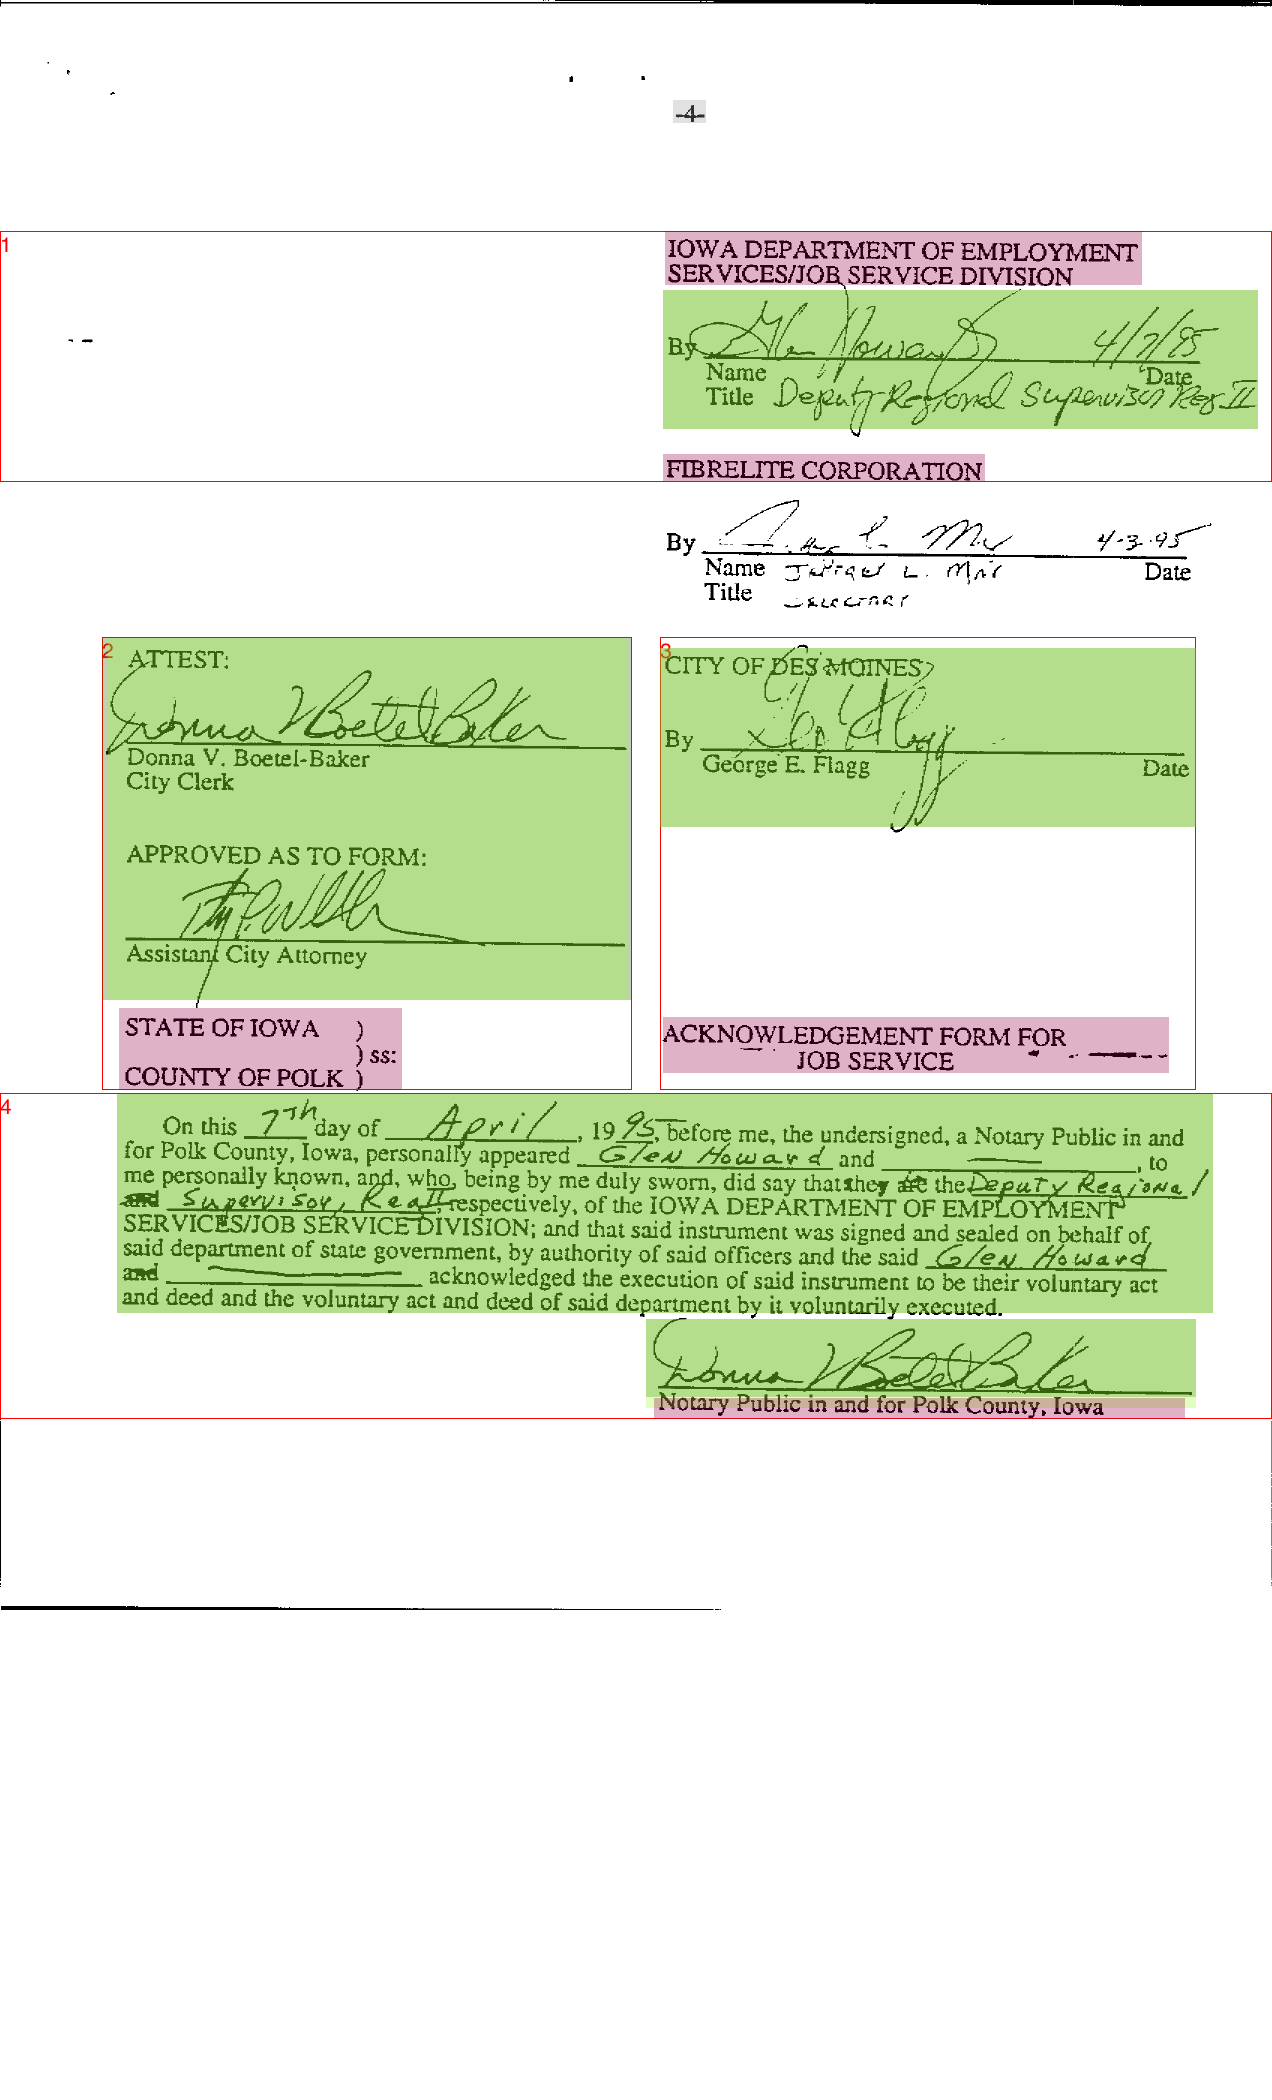 -4-
1
IOWA DEPARTMENT OF EMPLOYMENT
SERVICES/JOB SERVICE DIVISION
By Glen Howard 4/7/95
Name Date
Title Deputy Regional Supervisor Reg II
FIBRELITE CORPORATION
By 4-3-95
Name L. Date
Title
2
ATTEST:
Donna V Boetel-Baker
Donna V. Boetel-Baker
City Clerk
APPROVED AS TO FORM:
Assistant City Attorney
3
CITY OF DES MOINES
By Geo E Flagg
George E. Flagg Date
STATE OF IOWA )
) ss:
COUNTY OF POLK )
ACKNOWLEDGEMENT FORM FOR
JOB SERVICE
4
On this 7th day of April, 1995, before me, the undersigned, a Notary Public in and
for Polk County, Iowa, personally appeared Glen Howard and , to
me personally known, and, who, being by me duly sworn, did say that they are the Deputy Regional
and Supervisor, Reg II, respectively, of the IOWA DEPARTMENT OF EMPLOYMENT
SERVICES/JOB SERVICE DIVISION; and that said instrument was signed and sealed on behalf of
said department of state government, by authority of said officers and the said Glen Howard
and acknowledged the execution of said instrument to be their voluntary act
and deed and the voluntary act and deed of said department by it voluntarily executed.
Donna V Boetel-Baker
Notary Public in and for Polk County, Iowa